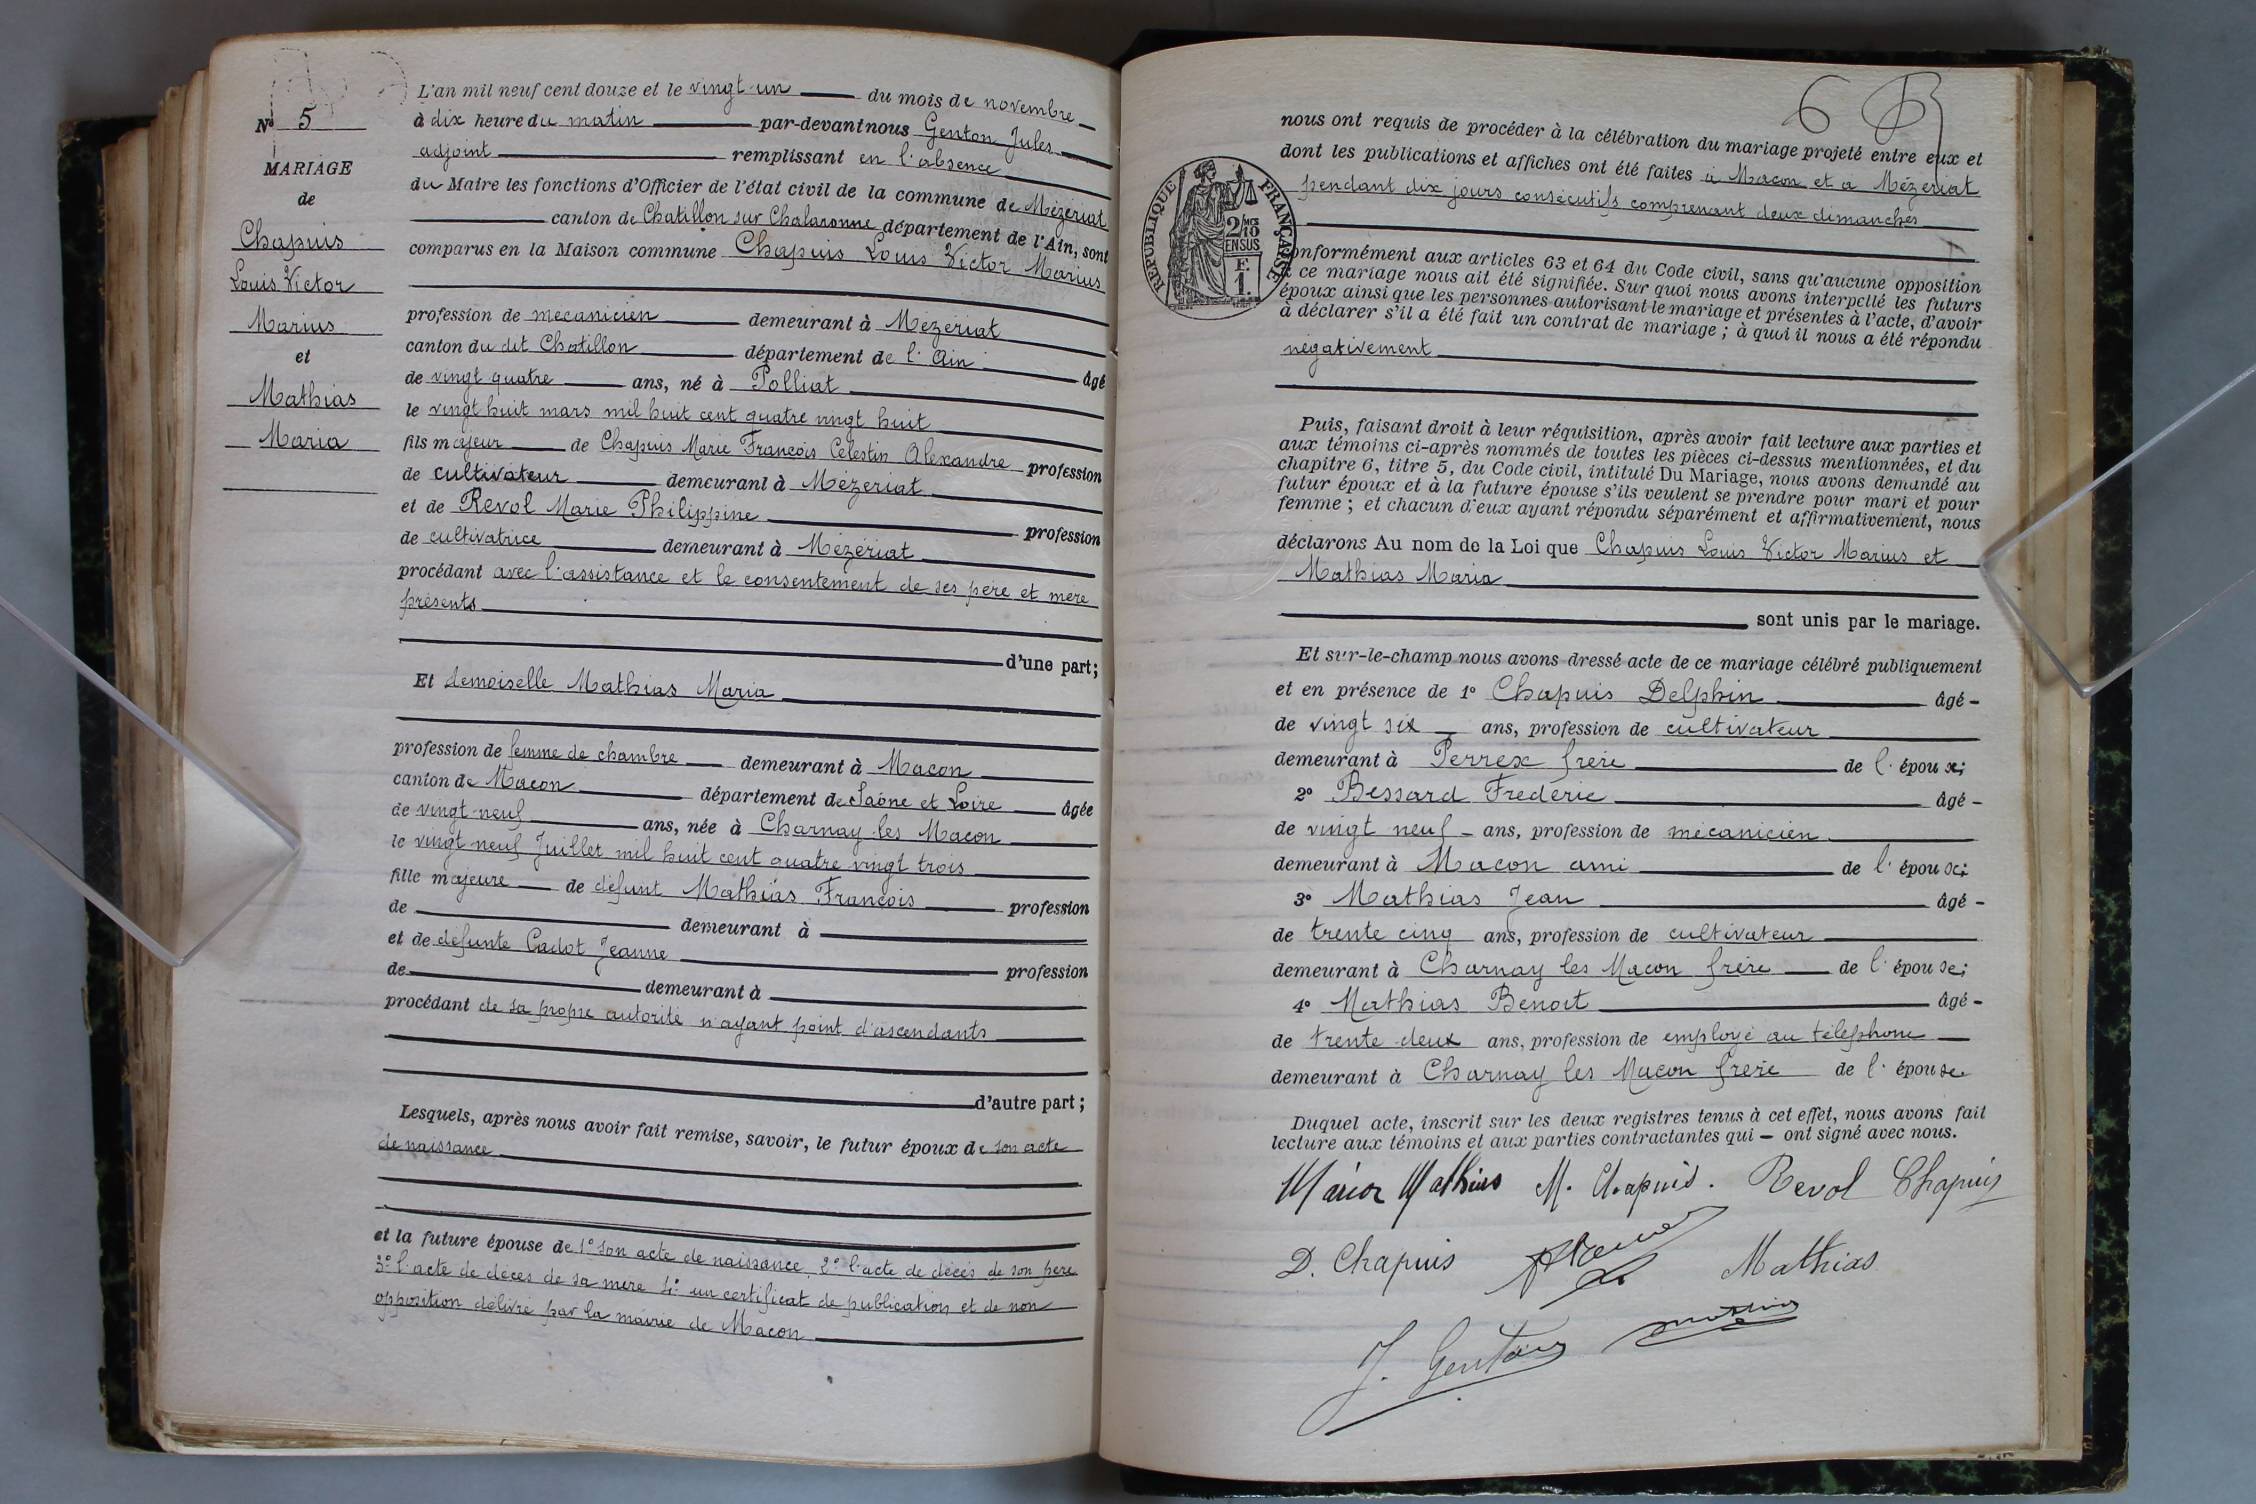 L'an mil neuf cent douze et le vingt-un du mois de novembre
N° 5
à dix heure du matin par-devant nous Genton Jules
adjoint remplissant en l'absence
MARIAGE
du Maire les fonctions d'Officier de l'état civil de la commune de Mézériat
de
canton de Chatillon sur Chalaronne département de l'Ain, sont
Chapuis
comparus en la Maison commune Chapuis Louis Victor Marius
Louis Victor
Marius
profession de mécanicien demeurant à Mézériat
et
canton du dit Chatillon département de l'Ain âgé
Mathias
de vingt quatre ans, né à Polliat
le vingt huit mars mil huit cent quatre vingt huit
Maria
fils majeur de Chapuis Marie François Célestin Alexandre profession
de cultivateur demeurant à Mézériat
et de Revol Marie Philippine profession
de cultivatrice demeurant à Mézériat
procédant avec l'assistance et le consentement de ses père et mère
présents
d'une part;
Et demoiselle Mathias Maria
profession de femme de chambre demeurant à Macon
canton de Macon département de Saône et Loire âgée
de vingt-neuf ans, née à Charnay les Macon
le vingt-neuf Juillet mil huit cent quatre vingt trois
fille majeure de défunt Mathias François profession
de demeurant à
et de défunte Cadot Jeanne profession
de demeurant à
procédant de sa propre autorité n'ayant point d'ascendants
d'autre part;
Lesquels, après nous avoir fait remise, savoir, le futur époux de son acte
de naissance
et la future épouse de 1° son acte de naissance 2° l'acte de décès de son père
3° l'acte de décès de sa mère 4° un certificat de publication et de non
opposition délivré par la mairie de Macon
6
nous ont requis de procéder à la célébration du mariage projeté entre eux et
dont les publications et affiches ont été faites à Macon et a Mézériat
pendant dix jours consécutifs comprenant deux dimanches
RÉPUBLIQUE FRANÇAISE
2/10 EN SUS
F. 1.
onformément aux articles 63 et 64 du Code civil, sans qu'aucune opposition
à ce mariage nous ait été signifiée. Sur quoi nous avons interpellé les futurs
époux ainsi que les personnes autorisant le mariage et présentes à l'acte, d'avoir
à déclarer s'il a été fait un contrat de mariage; à quoi il nous a été répondu
négativement
Puis, faisant droit à leur réquisition, après avoir fait lecture aux parties et
aux témoins ci-après nommés de toutes les pièces ci-dessus mentionnées, et du
chapitre 6, titre 5, du Code civil, intitulé Du Mariage, nous avons demandé au
futur époux et à la future épouse s'ils veulent se prendre pour mari et pour
femme; et chacun d'eux ayant répondu séparément et affirmativement, nous
déclarons Au nom de la Loi que Chapuis Louis Victor Marius et
Mathias Maria
sont unis par le mariage.
Et sur-le-champ nous avons dressé acte de ce mariage célébré publiquement
et en présence de 1° Chapuis Delphin âgé
de vingt six ans, profession de cultivateur
demeurant à Perrex frère de l'époux;
2° Bessard Frédéric âgé
de vingt neuf ans, profession de mécanicien
demeurant à Macon ami de l'épouse;
3° Mathias Jean âgé
de trente cinq ans, profession de cultivateur
demeurant à Charnay les Macon frère de l'épouse;
4° Mathias Benoit âgé
de trente-deux ans, profession de employé au téléphone
demeurant à Charnay les Macon frère de l'épouse
Duquel acte, inscrit sur les deux registres tenus à cet effet, nous avons fait
lecture aux témoins et aux parties contractantes qui – ont signé avec nous.
Maria Mathias M. Chapuis. Revol Chapuis
D. Chapuis Mathias
J. Genton